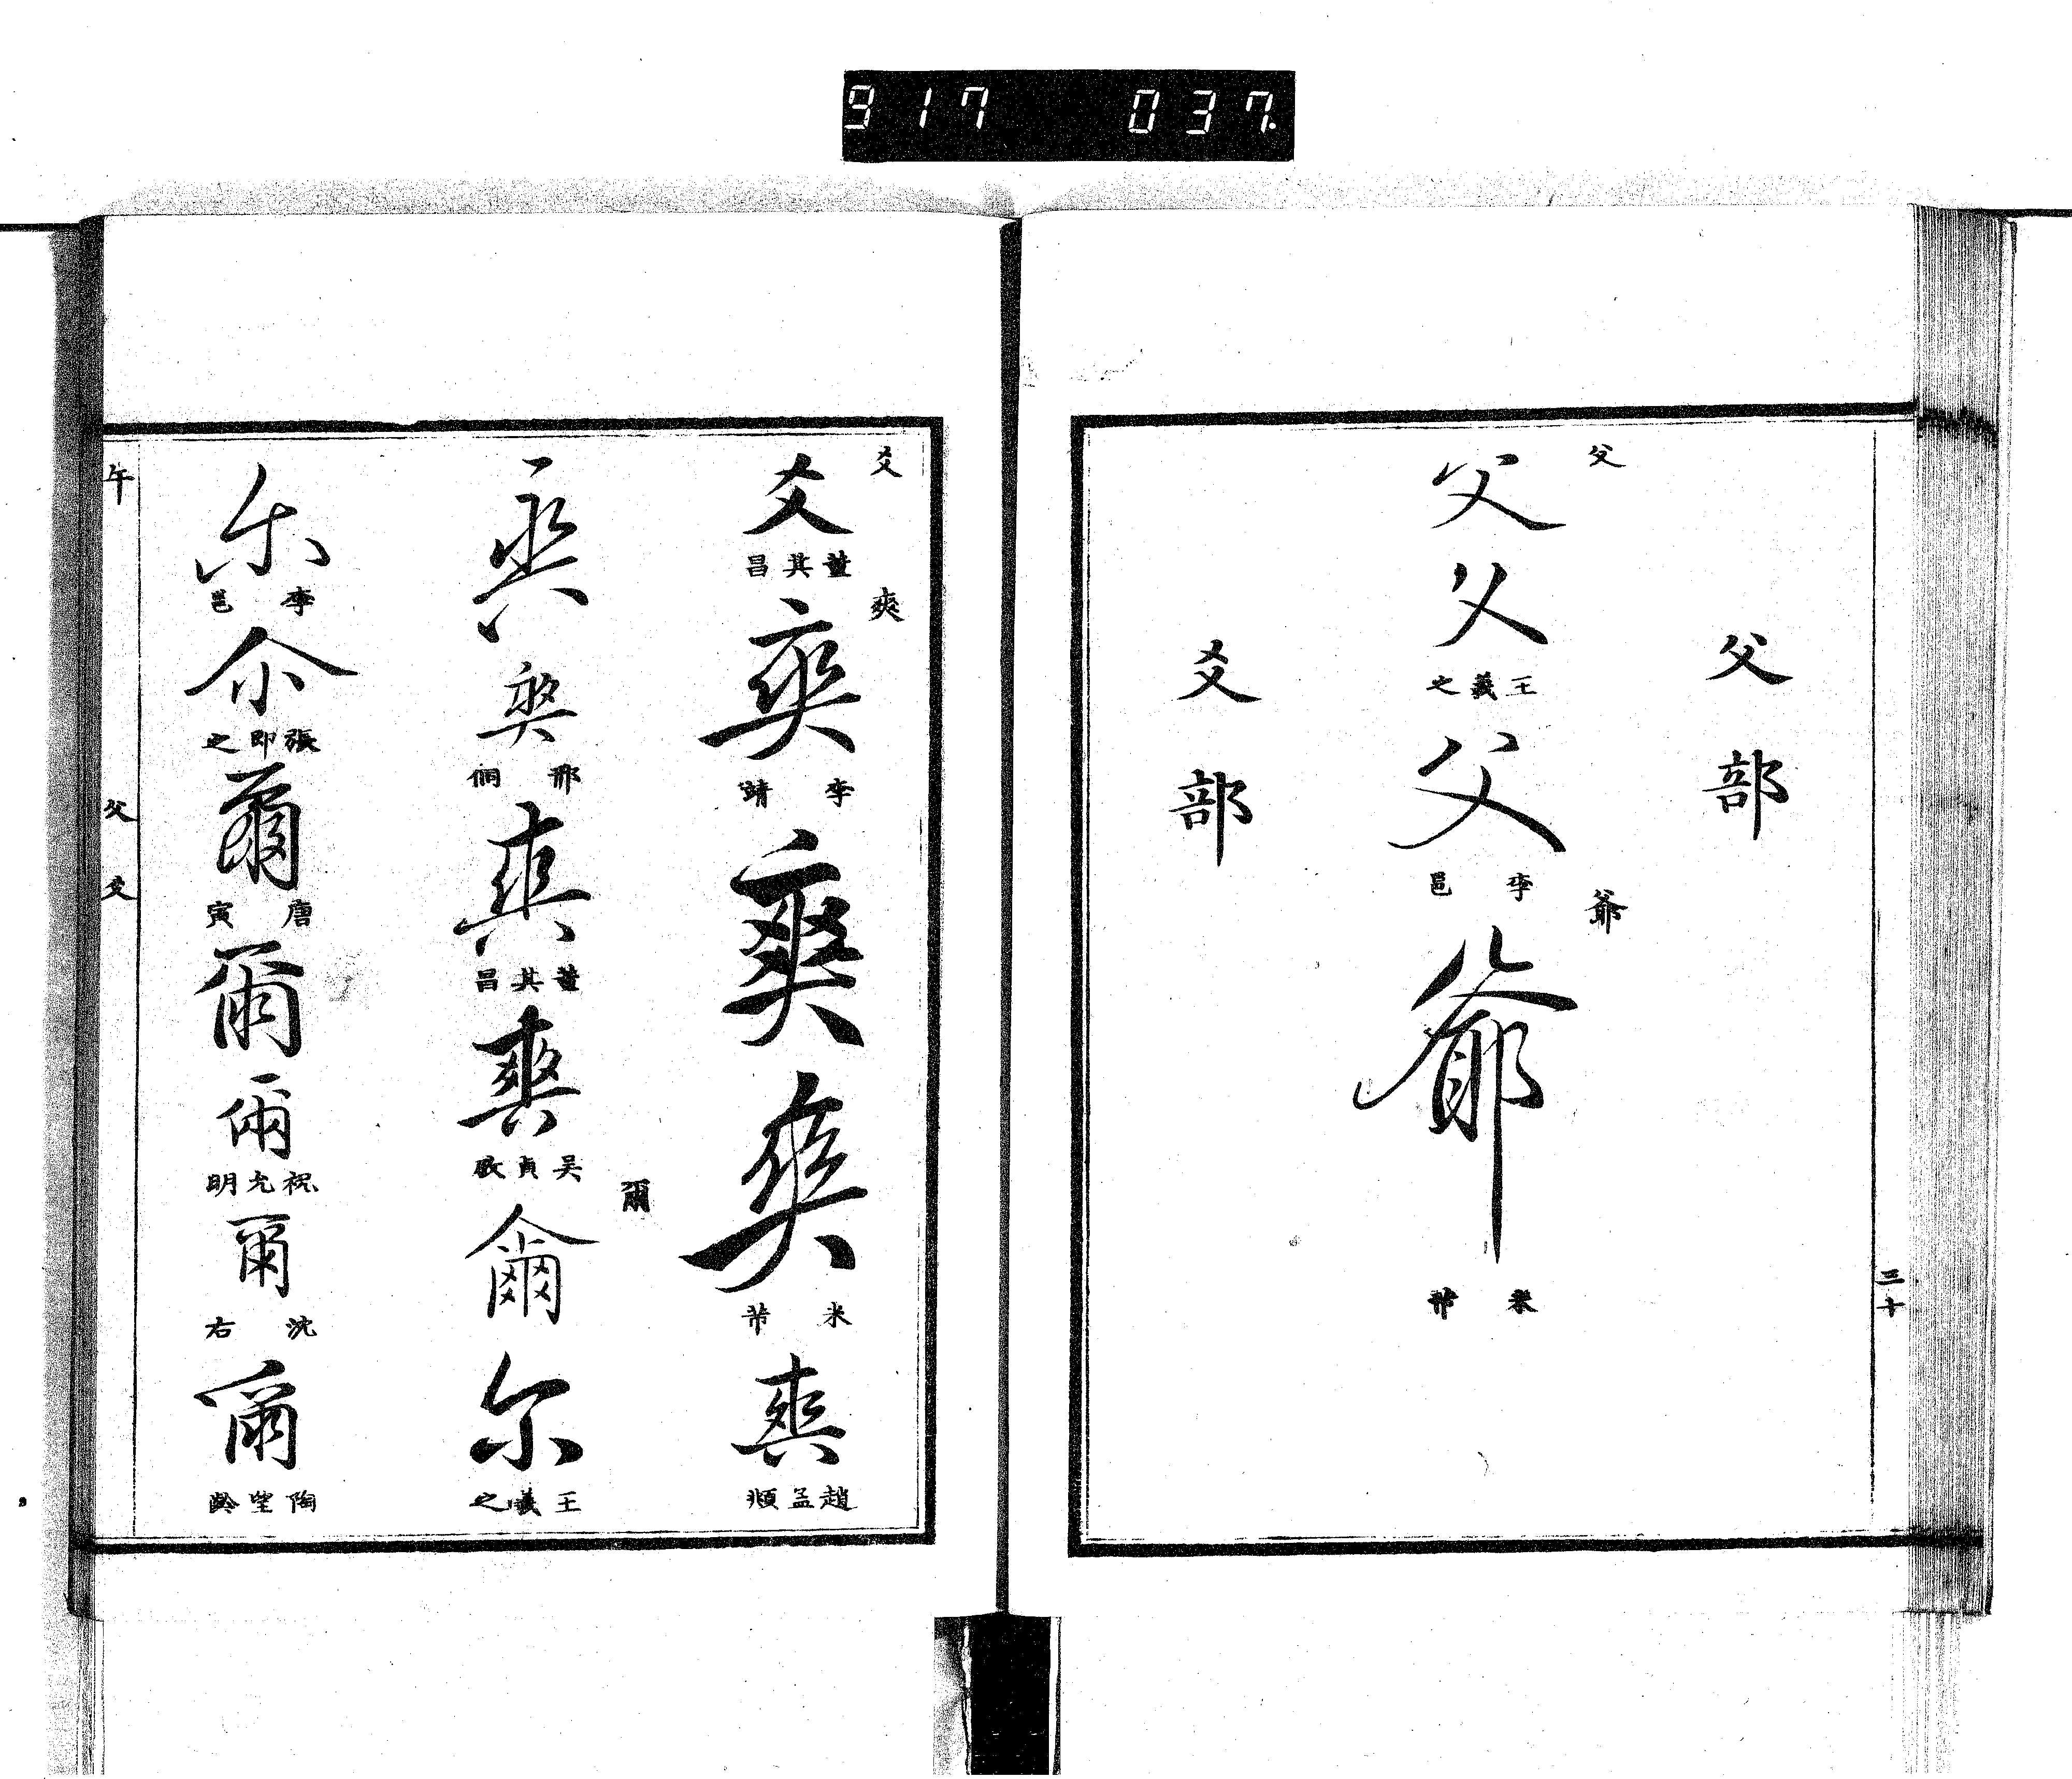 917 037
三十
父部
父
父
父
王羲之
父
李邕
爺
爺
米芾
爻部
爻
爻
董其昌
爽
爽
李靖
爽
爽
米芾
爽
趙孟頫
爽
爽
邢侗
爽
董其昌
爽
吳
爾
爾
尔
王羲之
尔
李邕
尒
張即之
爾
唐寅
爾
爾
祝允明
爾
沈右
爾
陶望齡
午
父
爻